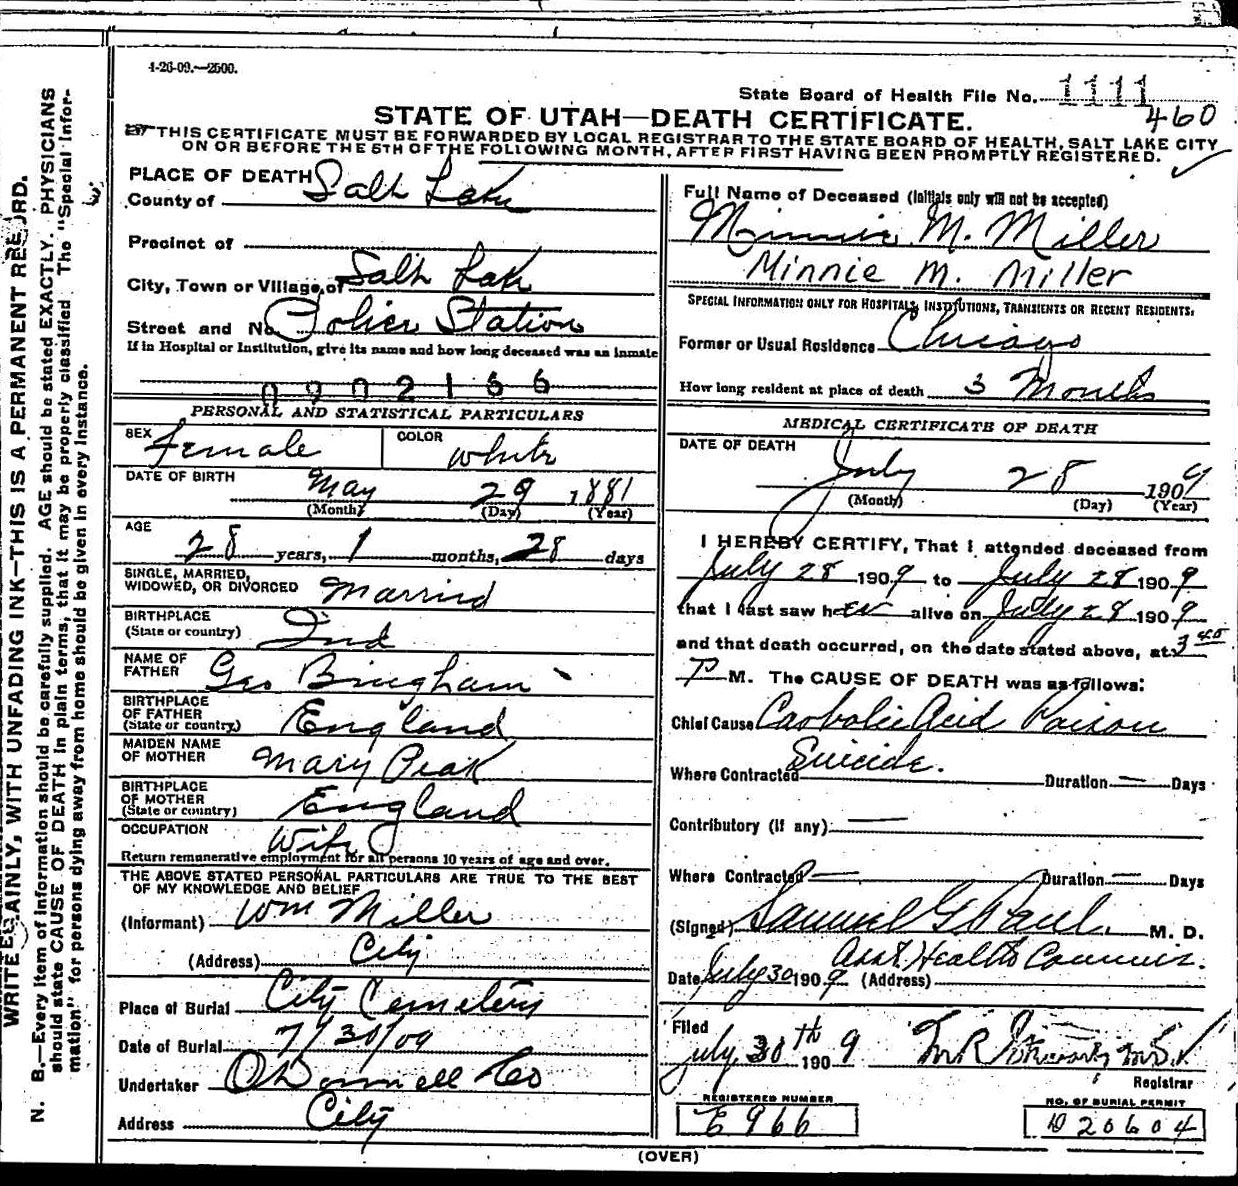 4-26-09.—2500.
State Board of Health File No. 1111
460
STATE OF UTAH—DEATH CERTIFICATE.
THIS CERTIFICATE MUST BE FORWARDED BY LOCAL REGISTRAR TO THE STATE BOARD OF HEALTH, SALT LAKE CITY
ON OR BEFORE THE 5TH OF THE FOLLOWING MONTH, AFTER FIRST HAVING BEEN PROMPTLY REGISTERED.
WRITE PLAINLY, WITH UNFADING INK—THIS IS A PERMANENT RECORD.
N. B.—Every item of information should be carefully supplied. AGE should be stated EXACTLY. PHYSICIANS
should state CAUSE OF DEATH in plain terms, that it may be properly classified. The "Special Infor-
mation" for persons dying away from home should be given in every instance.
PLACE OF DEATH
County of Salt Lake
Precinct of
City, Town or Village of Salt Lake
Street and No. Police Station
If in Hospital or Institution, give its name and how long deceased was an inmate
0902166
PERSONAL AND STATISTICAL PARTICULARS
SEX Female COLOR White
DATE OF BIRTH May 29 1881
(Month) (Day) (Year)
AGE 28 years, 1 months, 28 days
SINGLE, MARRIED,
WIDOWED, OR DIVORCED Married
BIRTHPLACE
(State or country) Ind
NAME OF
FATHER Geo Bingham
BIRTHPLACE
OF FATHER
(State or country) England
MAIDEN NAME
OF MOTHER Mary Peak
BIRTHPLACE
OF MOTHER
(State or country) England
OCCUPATION Wife
Return remunerative employment for all persons 10 years of age and over.
THE ABOVE STATED PERSONAL PARTICULARS ARE TRUE TO THE BEST
OF MY KNOWLEDGE AND BELIEF
(Informant) Wm Miller
(Address) City
Place of Burial City Cemetery
Date of Burial 7/30/09
Undertaker O'Donnell & Co
Address City
Full Name of Deceased (Initials only will not be accepted)
Minnie M. Miller
Minnie M. Miller
SPECIAL INFORMATION ONLY FOR HOSPITALS, INSTITUTIONS, TRANSIENTS OR RECENT RESIDENTS.
Former or Usual Residence Chicago
How long resident at place of death 3 Months
MEDICAL CERTIFICATE OF DEATH
DATE OF DEATH
July 28 1909
(Month) (Day) (Year)
I HEREBY CERTIFY, That I attended deceased from
July 28 1909 to July 28 1909
that I last saw her alive on July 28 1909
and that death occurred, on the date stated above, at 3 40
P M. The CAUSE OF DEATH was as follows:
Chief Cause Carbolic Acid Poison
Suicide.
Where Contracted Duration — Days
Contributory (if any) —
Where Contracted — Duration — Days
(Signed) Samuel G. Paul. M. D.
Asst Health Commis.
Date July 30 1909 (Address)
Filed
July 30th 1909
Registrar
REGISTERED NUMBER
E966
NO. OF BURIAL PERMIT
D 20604
(OVER)